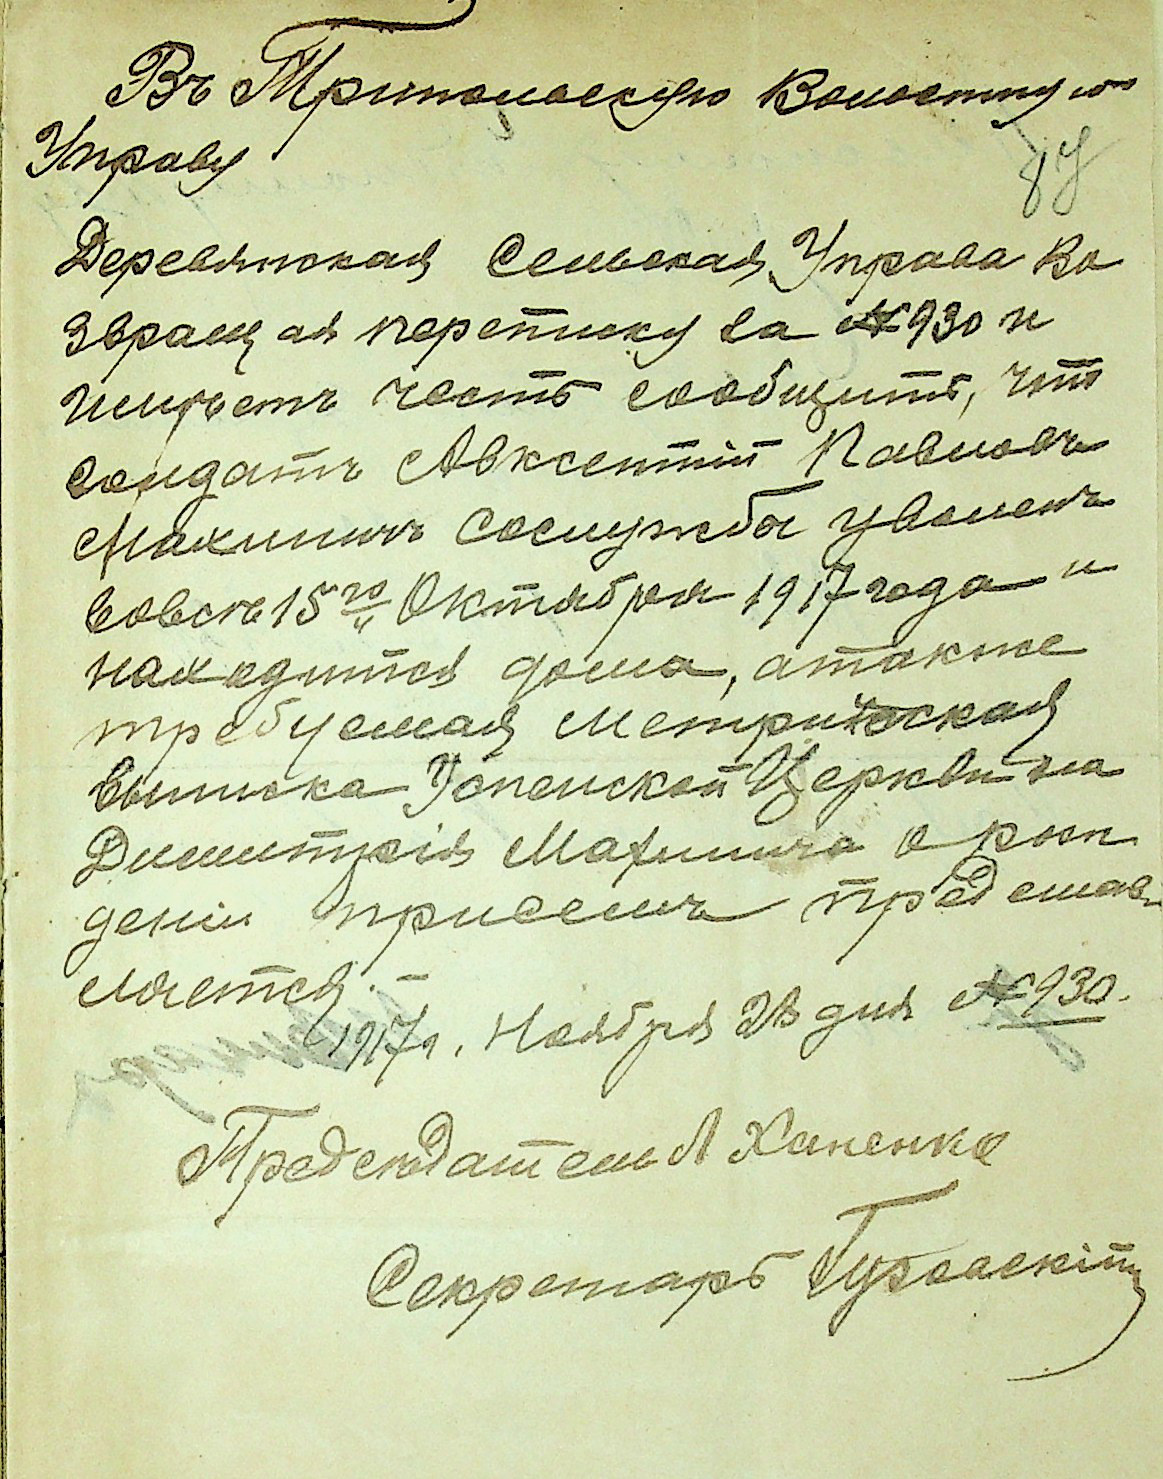 Въ Трипольскую Волостную
Управу
87
Деревянская Сельская Управа Во
звращая переписку за №930 и
имѣетъ честь сообщить, что
солдатъ Авксентій Павловъ
Махиничъ сослужбы уволенъ
вовсе 15го Октября 1917 года и
находится дома, атакже
требуемая Метрическая
выписка Успенской Церкви на
Димитрія Махинича о рож
деніи присемъ представ
ляется.—
1917г. Ноября 28 дня №930.
Председатель А Ханенко
Секретарь